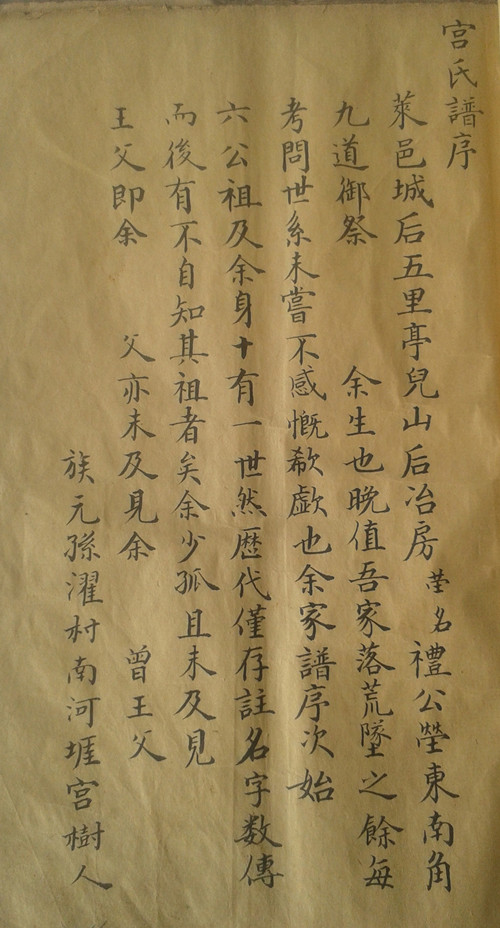 宫氏譜序
萊邑城后五里亭兒山后冶房茔名禮公塋東南角
九道御祭 余生也晚值吾家落荒墜之餘每
考問世系未嘗不感慨欷歔也余家譜序次始
六公祖及余身十有一世然歷代僅存註名字数傳
而後有不自知其祖者矣余少孤且未及見
王父即余 父亦未及見余 曾王父
族元孫濯村南河堐宫樹人